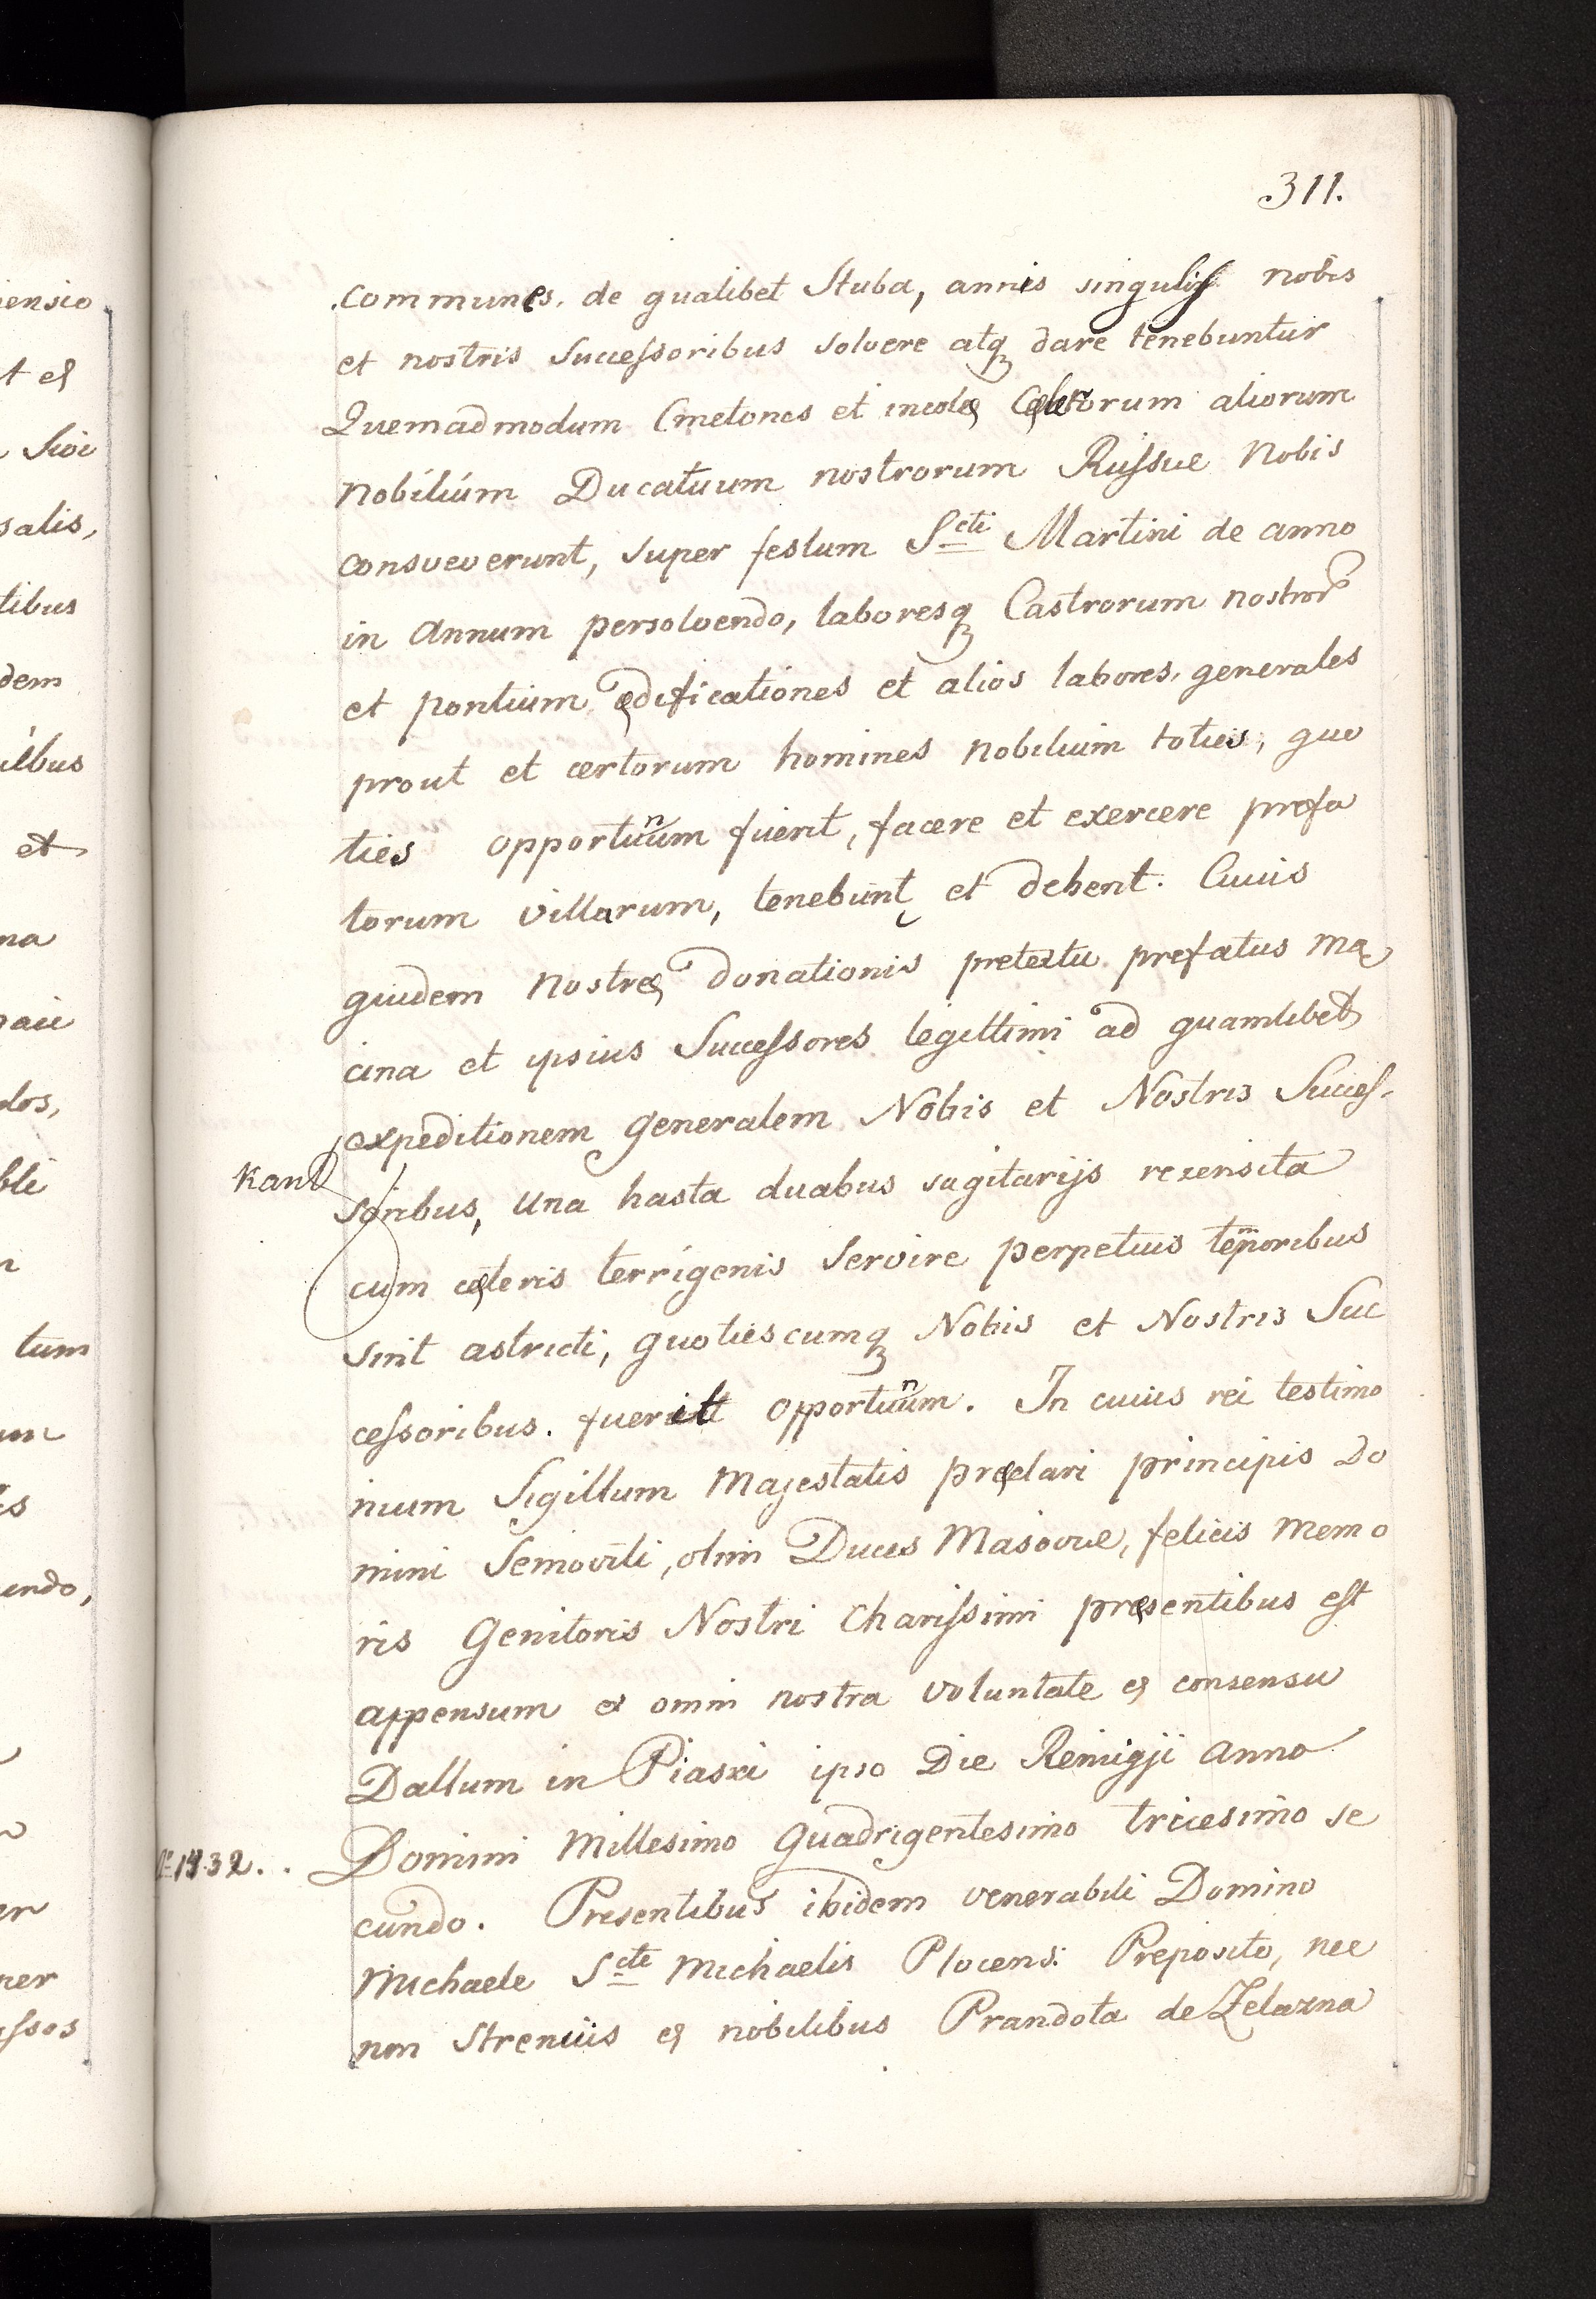 311.
communes. de qualibet Stuba, annis singulis nobis
et nostris Successoribus solvere atq dare tenebuntur
Quemadmodum Cmetones et incolę cęterorum aliorum
nobilium Ducatuum nostrorum Russue Nobis
consveverunt, super festum Scti Martini de anno
in annum persolvendo, laboresq Castrorum nostror
et pontium ędificationes et alios labores, generales
prout et certorum homines nobilium toties, quo
ties opportunum fuerit, facere et exercere prefa
torum villarum, tenebunt et debent. Cuius
quidem nostrę donationis pretextu prefatus Ma
cina et ipsius Successores legittimi ad quamlibet
expeditionem generalem Nobis et Nostris Succes-
soribus, una hasta duabus sagitarijs rezensita
Kant
cum cęteris terrigenis servire perpetuis temporibus
sint astricti, quotiescumq Nobis et Nostris Suc
cessoribus. fuerit opportunum. In cuius rei testimo
nium Sigillum Majestatis pręclari principis Do
mini Semoviti, olim Ducis Masovie, felicis memo
ris Genitoris Nostri Charissimi pręsentibus est
appensum ex omni nostra voluntate et consensu
Dattum in Piaski ipso Die Remigji anno
1432.. Domini Millesimo Quadrigentesimo tricesimo se
cundo. Presentibus ibidem venerabili Domino
Michaele Scti Michaelis Plocens: Preposito, nec
non Strenuis et nobilibus Prandota de Zelazna